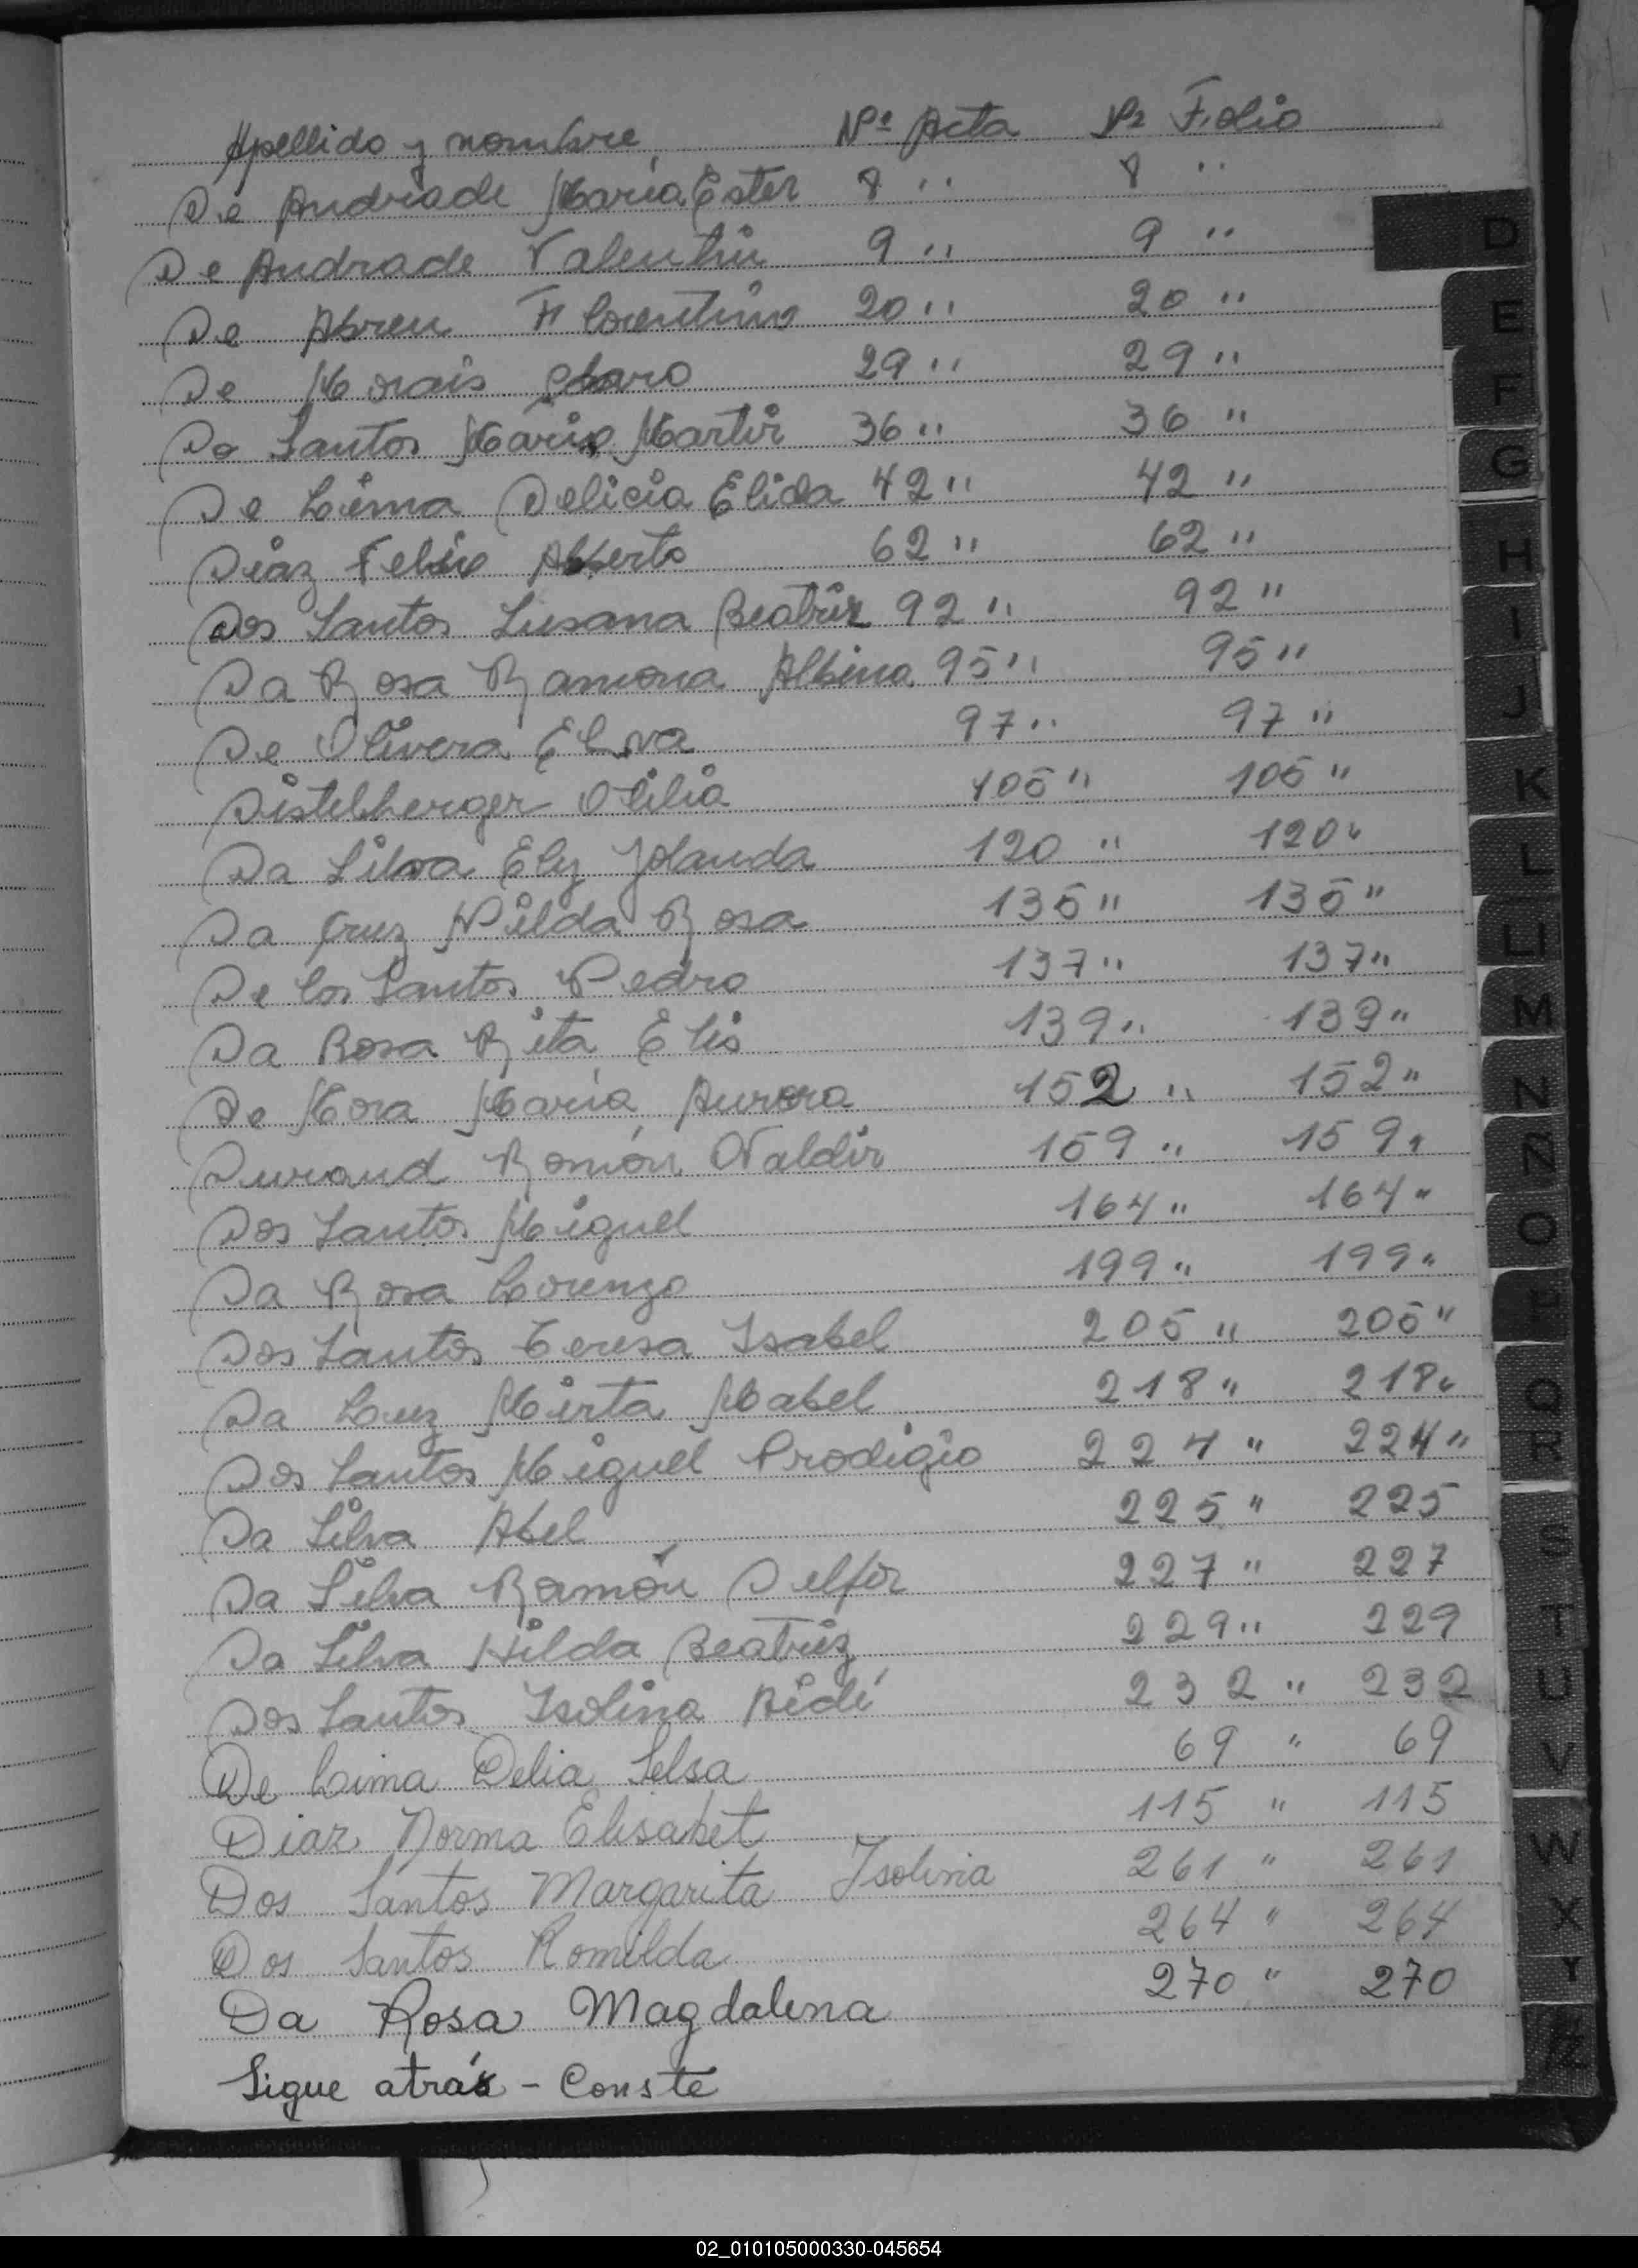 Apellido y nombre, Nº Acta Nº Folio
De Andrade María Ester 8 " 8 "
De Andrade Valentin 9 " 9 "
De Abreu Florentino 20 " 20 "
De Morais 29 " 29 "
Do Santos Mario Martir 36 " 36 "
De Lima Delicia Elida 42 " 42 "
Diaz Felix Alberto 62 " 62 "
Dos Santos Susana Beatriz 92 " 92 "
Da Rosa Ramona Albina 95 " 95 "
De Olivera Elva 97 " 97 "
Distelberger Otilia 105 " 105 "
Da Silva Ely Jolanda 120 " 120 "
Da Cruz Nilda Rosa 135 " 135 "
De los Santos Pedro 137 " 137 "
Da Rosa Rita Elis 139 " 139 "
De Mora María Aurora 152 " 152 "
Durand Ramón Valdir 159 " 159 "
Dos Santos Miguel 164 " 164 "
Da Rosa Lorenzo 199 " 199 "
Dos Santos Teresa Isabel 205 " 205 "
Da Luz Mirta Mabel 218 " 218 "
Dos Santos Miguel Prodigio 224 " 224 "
Da Silva Abel 225 " 225
Da Silva Ramón Delfir 227 " 227
Da Silva Hilda Beatriz 229 " 229
Dos Santos Isolina 232 " 232
De Lima Delia Selsa 69 " 69
Diaz Norma Elisabet 115 " 115
Dos Santos Margarita Isolina 261 " 261
Dos Santos Romilda 264 " 264
Da Rosa Magdalena 270 " 270
Sigue atrás - Conste
D
E
F
G
H
I
J
K
L
Ll
M
N
Ñ
O
P
Q
R
S
T
U
V
W
X
Y
Z
02_010105000330-045654